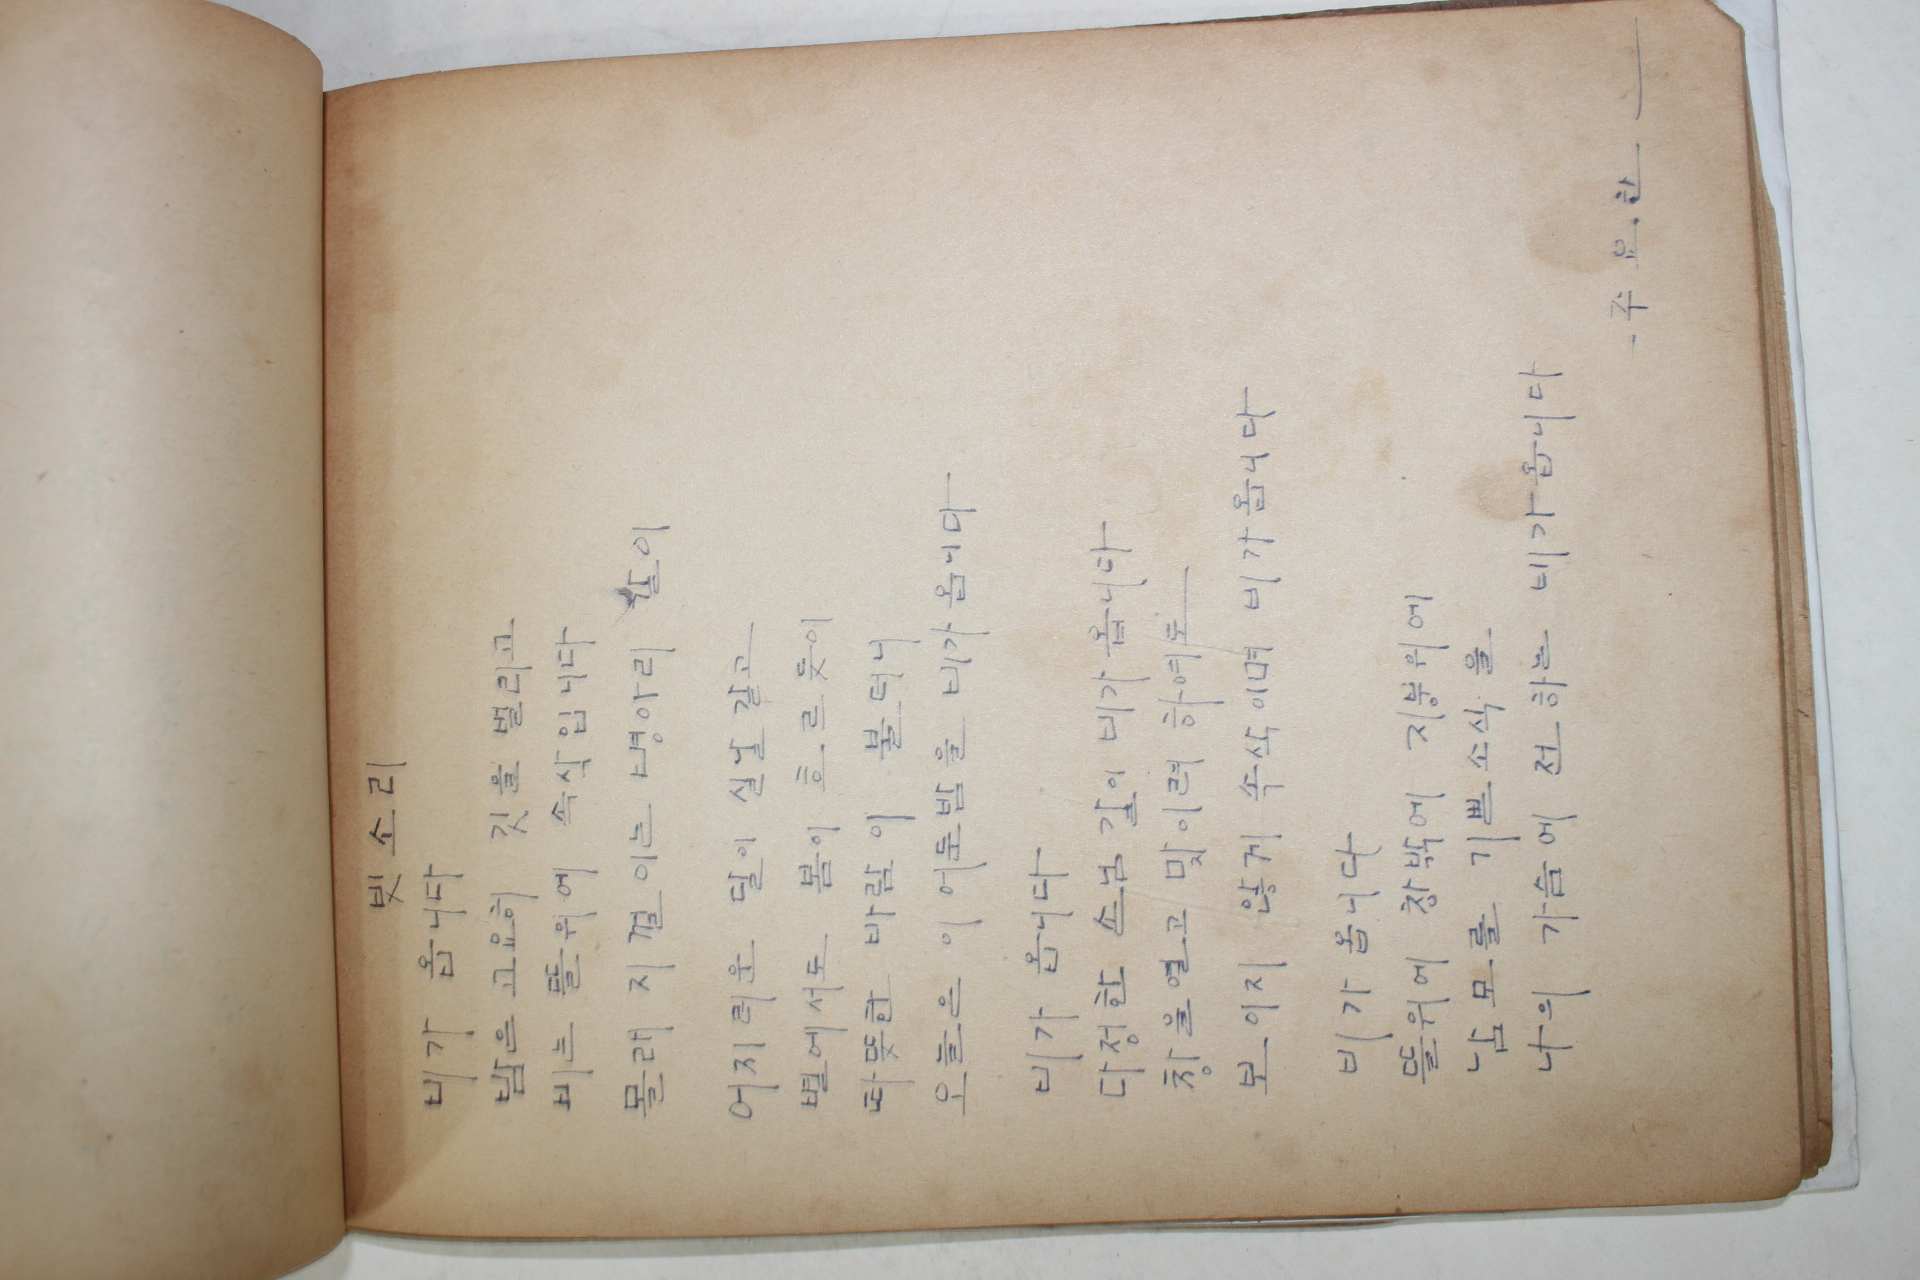 빗소리
비가 옵니다
밤은 고요히 깃을 벌리고
비는 뜰위에 속삭입니다
몰래 지껄이는 병아리 같이
어지러운 달이 실날 같고
별에서도 봄이 흐르듯이
따뜻한 바람이 불더니
오늘은 이 어둔밤을 비가 옵니다
비가 옵니다
다정한 손님같이 비가 옵니다
창을 열고 맞이려 하여도
보이지 않게 속삭이며 비가 옵니다
비가 옵니다
뜰위에 창밖에 지붕위에
남모를 기쁜소식을
나의 가슴에 전하는 비가 옵니다
- 주요한 -